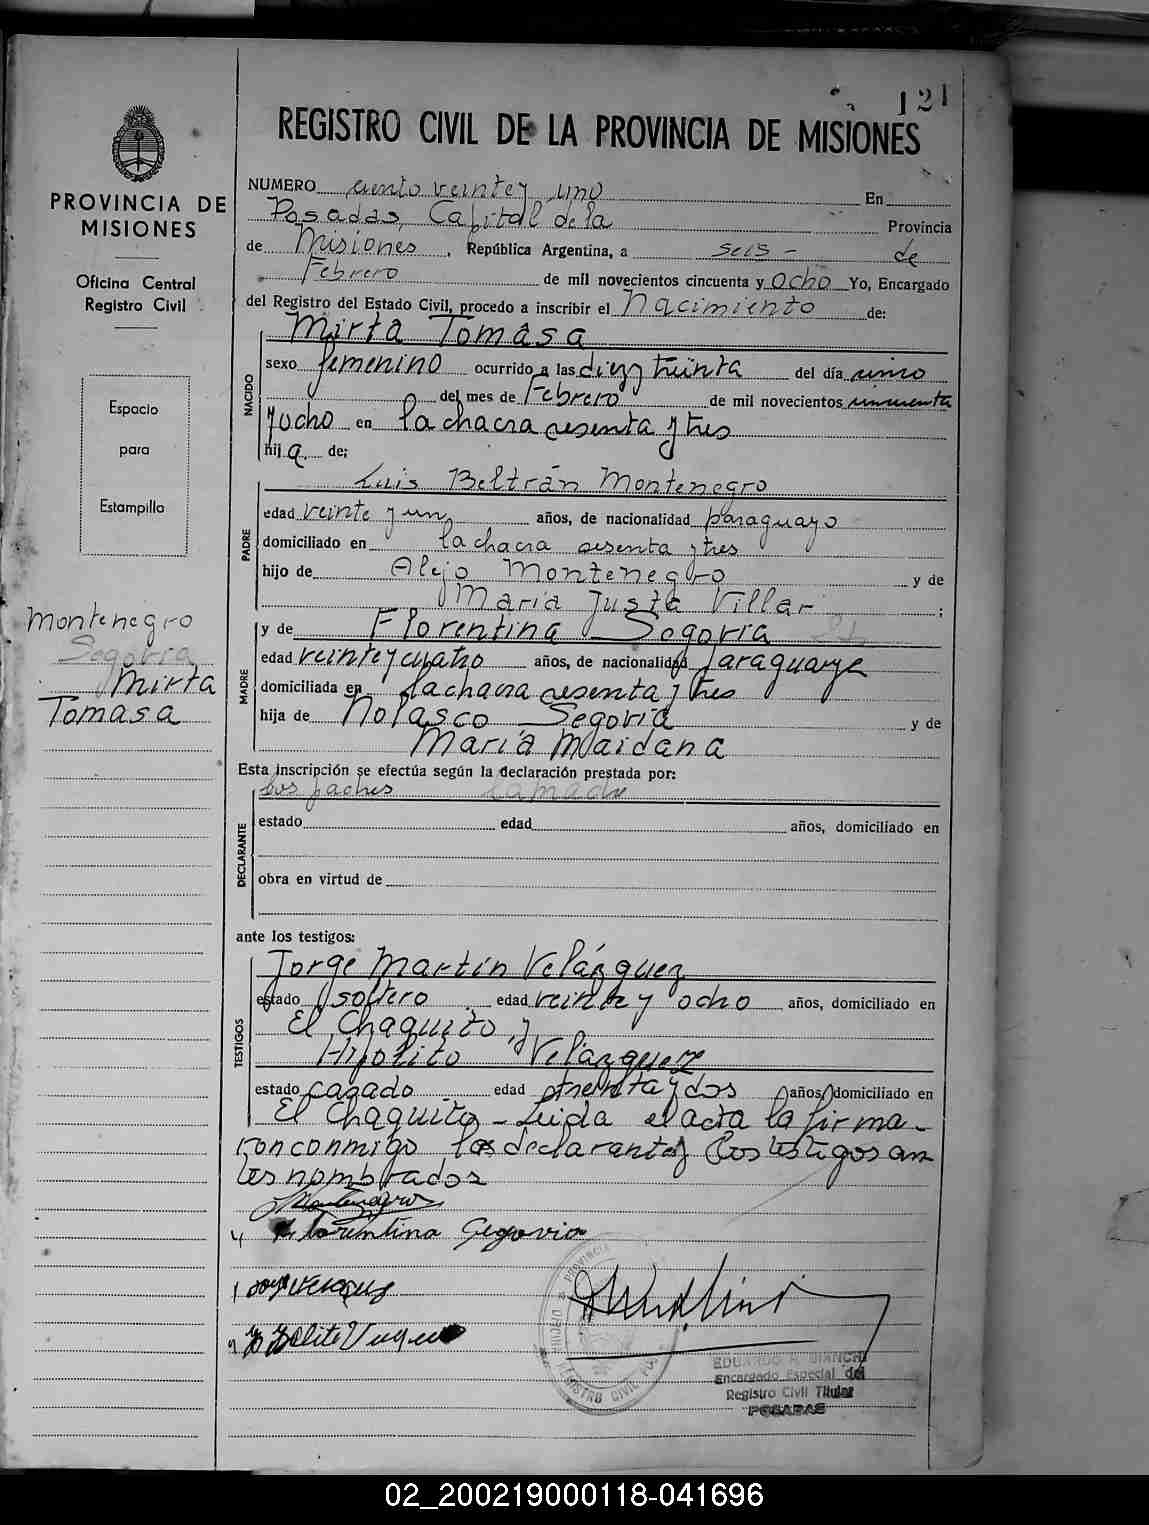 121
REGISTRO CIVIL DE LA PROVINCIA DE MISIONES
PROVINCIA DE
MISIONES
Oficina Central
Registro Civil
Espacio
para
Estampilla
Montenegro
Segovia
Mirta
Tomasa
NUMERO ciento veinte y uno En
Posadas, Capital de la Provincia
de Misiones, República Argentina, a seis - de
Febrero de mil novecientos cincuenta y ocho Yo, Encargado
del Registro del Estado Civil, procedo a inscribir el Nacimiento de:
Mirta Tomasa
NACIDO
sexo femenino ocurrido a las diez y treinta del día uno
del mes de Febrero de mil novecientos cincuenta
y ocho en la chacra sesenta y tres
hija de:
Luis Beltrán Montenegro
PADRE
edad veinte y un años, de nacionalidad paraguayo
domiciliado en la chacra sesenta y tres
hijo de Alejo Montenegro y de
María Justa Villar ;
y de Florentina Segovia
MADRE
edad veinte y cuatro años, de nacionalidad paraguaya
domiciliada en la chacra sesenta y tres
hija de Nolasco Segovia y de
María Maidana
Esta inscripción se efectúa según la declaración prestada por:
los padres la madre
DECLARANTE
estado edad años, domiciliado en
obra en virtud de
ante los testigos:
Jorge Martín Velázquez
TESTIGOS
estado soltero edad veinte y ocho años, domiciliado en
El Chaquito, y
Hipólito Velázquez
estado casado edad treinta y dos años, domiciliado en
El Chaquito - Leida el acta la firma-
ron conmigo los declarantes y los testigos an
tes nombrados
Montenegro
Florentina Segovia
EDUARDO R. BIANCHI
Encargado Especial del
Registro Civil Titular
POSADAS
PROVINCIA
REGISTRO CIVIL
02_200219000118-041696